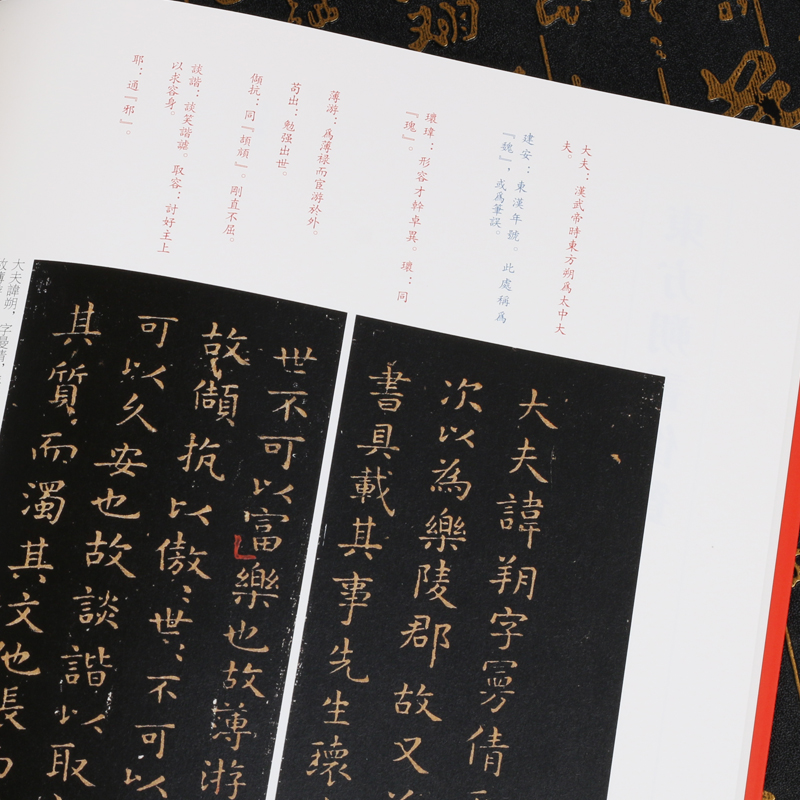 大夫：漢武帝時東方朔爲太中大
夫。
建安：東漢年號。此處稱爲
『魏』，或爲筆誤。
瓌瑋：形容才幹卓異。瓌：同
『瑰』。
薄游：爲薄祿而宦游於外。
苟出：勉强出世。
傾抗：同『頡頏』。剛直不屈。
談諧：談笑諧謔。取容：討好主上
以求容身。
耶：通『邪』。
大夫諱朔字曼倩
次以為樂陵郡故又
書具載其事先生瓌
世不可以富樂也故薄游
故傾抗以傲〻世〻不可以
可以久安也故談諧以取
其質而濁其文他長
大夫諱朔，字曼倩，